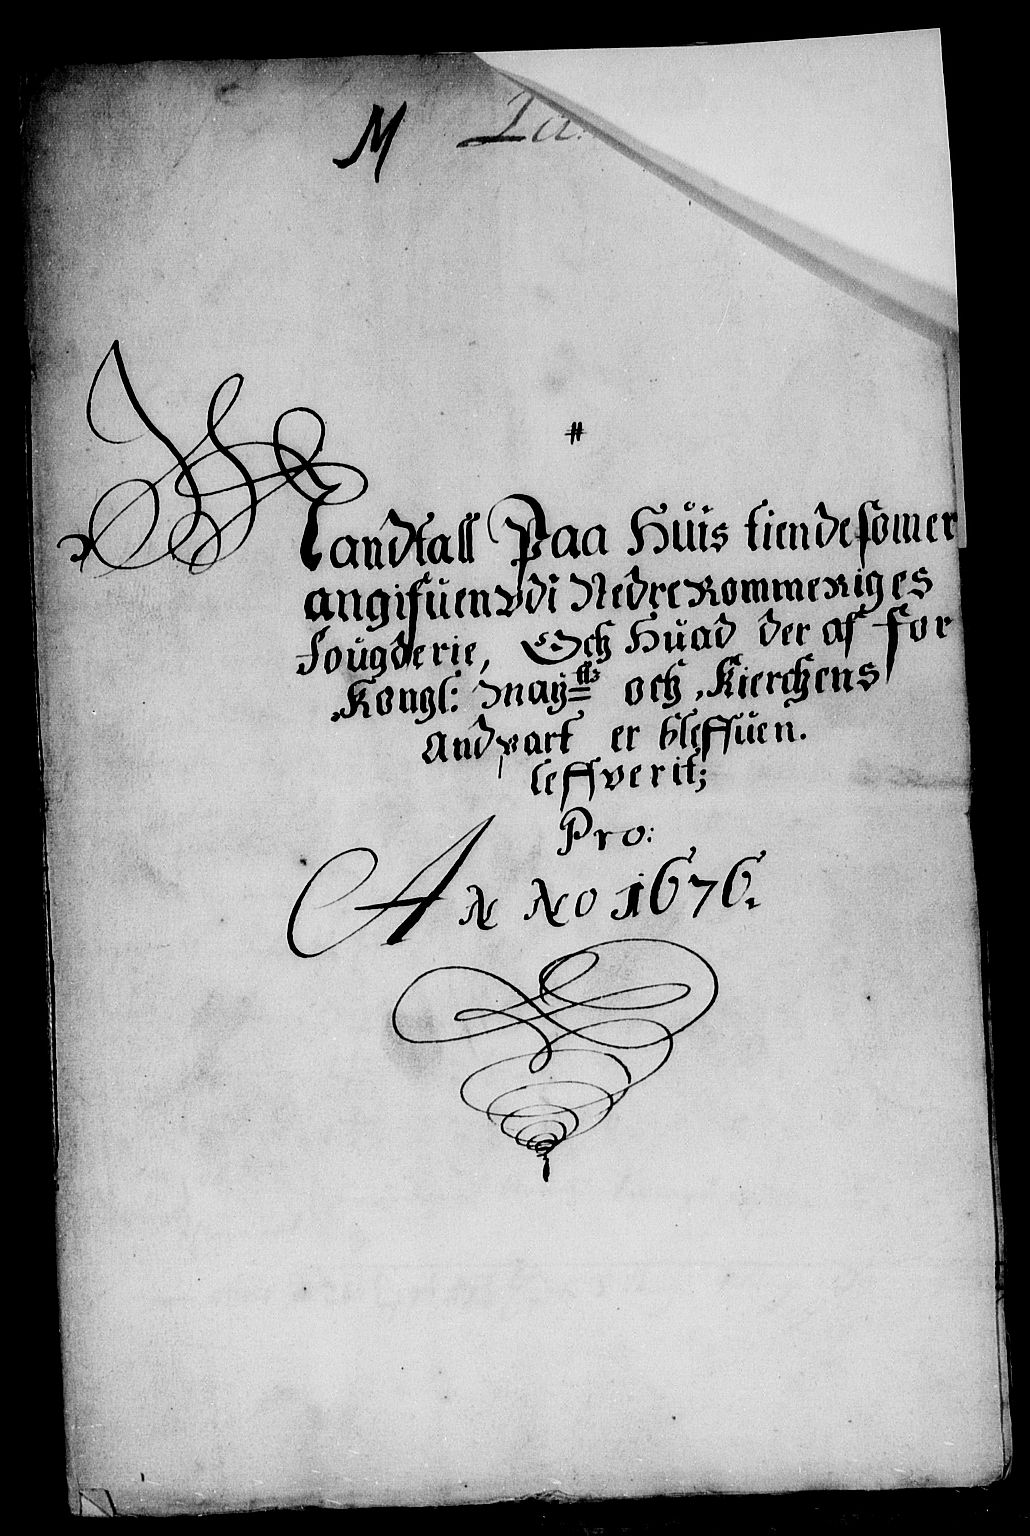 M
#
Mandtall Paa Hüis tiende som er
angifüen vdi Nedre Rommeriges
Foügderie, Och Hüad der af for
Kongl: Maÿ:tts och Kierchens
Andpart er bleffüen.
leffverit;
Pro:
ANNO 1676.